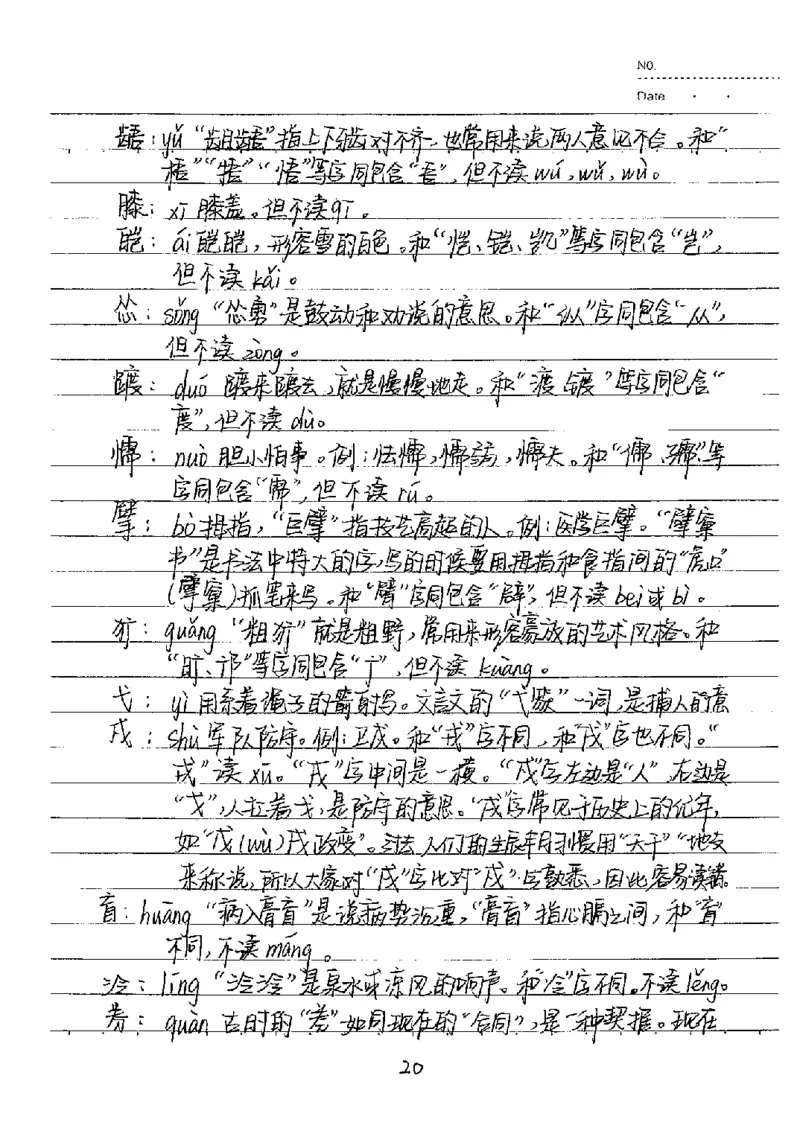 NO.
Date
龉：yǔ “龃龉”指上下齿对不齐，也常用来说两人意见不合。和“
梧”“牾”“悟”等字同包含“吾”，但不读wú，wǔ，wù。
膝：xī 膝盖。但不读qī。
皑：ái皑皑，形容雪的白色。和“恺、铠、凯”等字同包含“岂”，
但不读kǎi。
怂：sǒng “怂恿”是鼓动和劝说的意思。和“纵”字同包含“从”，
但不读zòng。
踱：duó 踱来踱去，就是慢慢地走。和“渡、镀”等字同包含“
度”，但不读dù。
懦：nuò胆小怕事。例：怯懦，懦弱，懦夫。和“儒、孺”等
字同包含“需”，但不读rú。
擘：bò拇指，“巨擘”指技艺高超的人。例：医学巨擘。“擘窠
书”是书法中特大的字，写的时候要用拇指和食指间的“虎口”
(擘窠)抓笔来写。和“臂”字同包含“辟”，但不读bei或bì。
犷：guǎng “粗犷”就是粗野，常用来形容豪放的艺术风格。和
“旷、邝”等字同包含“广”，但不读kuàng。
弋：yì用系着绳子的箭射鸟。文言文的“弋骇”一词，是捕人的意
戍：shù军队防守。例：卫戍。和“戎”字不同，和“戊”字也不同。“
戌”读xū。“戌”字中间是一横。“戍”字左边是“人”，右边是
“戈”，人拉着戈，是防守的意思。“戌”字常见于历史上的纪年，
如“戊(wù)戌政变”。过去人们的生辰年月习惯用“天干”“地支
来称说，所以大家对“戌”字比对“戍”字熟悉，因此容易读错。
肓：huāng “病入膏肓”是说病势沉重，“膏肓”指心膈之间，和“盲”
不同，不读máng。
泠：líng “泠泠”是泉水或凉风的响声。和“冷”字不同。不读lěng。
券：quàn 古时的“券”如同现在的“合同”，是一种契据。现在
20